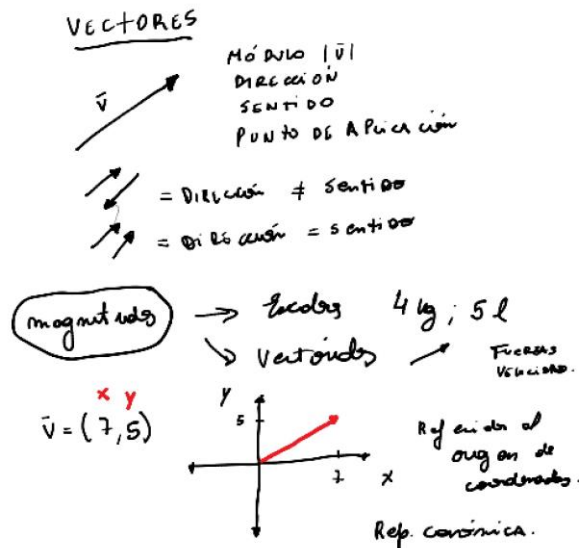 VECTORES
MÓDULO |v̄|
DIRECCIÓN
SENTIDO
PUNTO DE APLICACIÓN
v̄
= DIRECCIÓN ≠ SENTIDO
= DIRECCIÓN = SENTIDO
magnitudes → Escalares 4 kg ; 5 l
↘ Vectoriales
FUERZAS
VELOCIDAD.
x y
v̄ = (7,5)
y
5
7 x
Referidos al
origen de
coordenadas.
Rep. canónica.